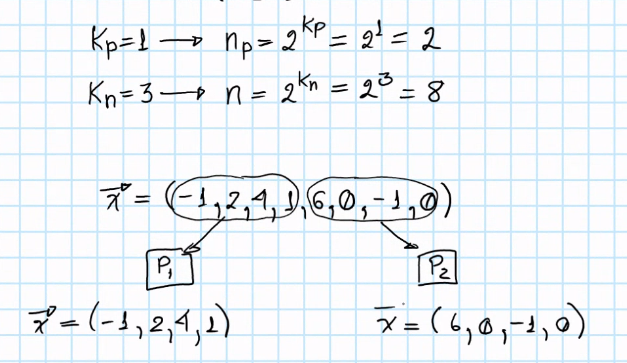 Kp=1 → np = 2^Kp = 2^1 = 2
Kn=3 → n = 2^Kn = 2^3 = 8
x⃗ = (-1,2,4,1,6,0,-1,0)
P1 P2
x⃗ = (-1,2,4,1) x̄ = (6,0,-1,0)